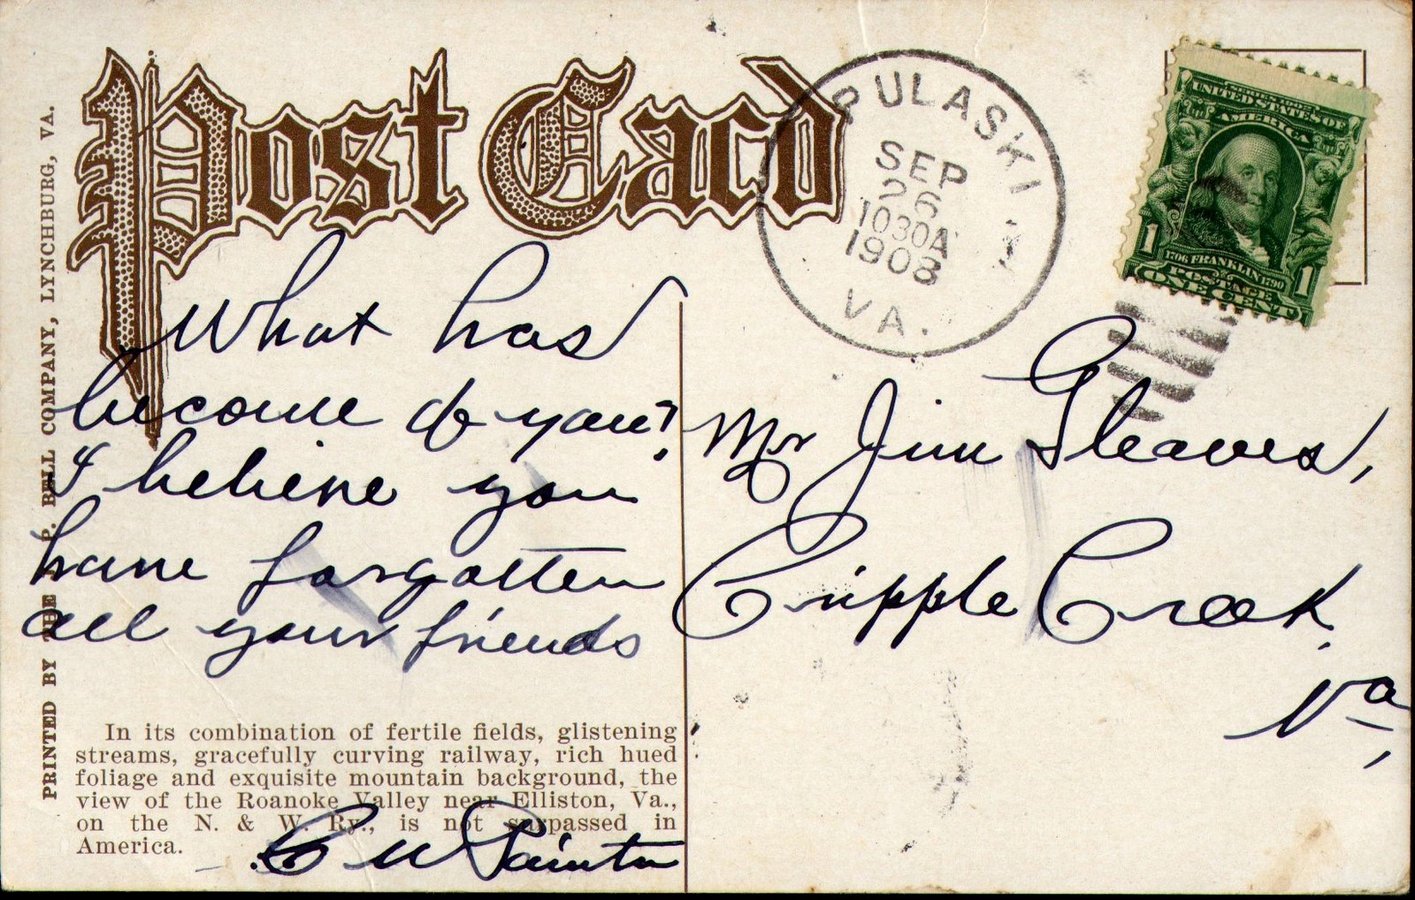 Post Card
PULASKI
SEP
26
1030A
1908
VA.
UNITED STATES OF
AMERICA
1706 FRANKLIN 1790
POSTAGE
1 1
ONE CENT
What has
become of you?
I believe you
have forgotten
all your friends
Mr Jim Gleaves,
Cripple Creek,
Va,
In its combination of fertile fields, glistening
streams, gracefully curving railway, rich hued
foliage and exquisite mountain background, the
view of the Roanoke Valley near Elliston, Va.,
on the N. & W. Ry., is not surpassed in
America.
C W Painter
PRINTED BY THE J. P. BELL COMPANY, LYNCHBURG, VA.